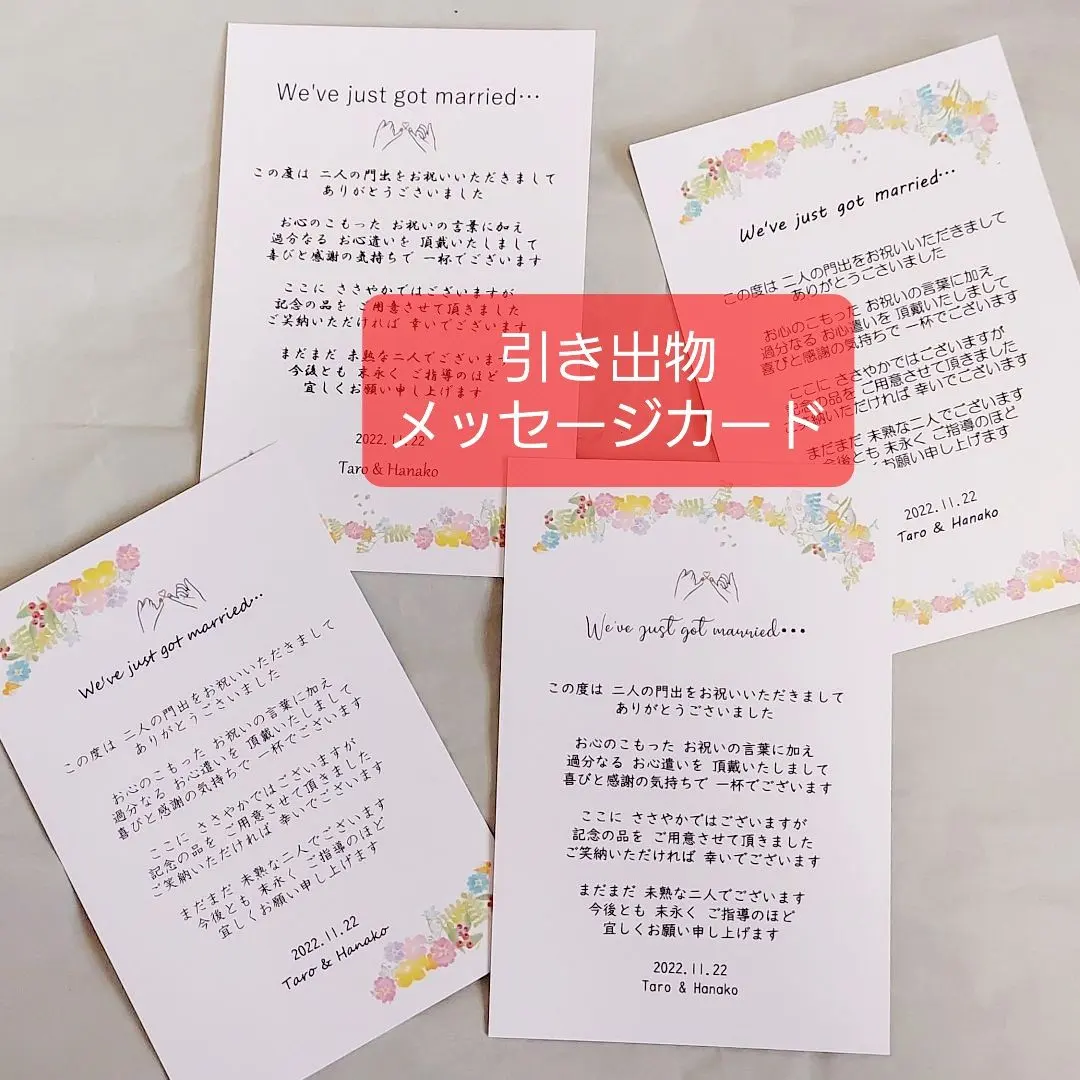 We've just got married…
この度は 二人の門出をお祝いいただきまして
ありがとうございました
お心のこもった お祝いの言葉に加え
過分なる お心遣いを 頂戴いたしまして
喜びと感謝の気持ちで 一杯でございます
ここに ささやかではございますが
記念の品を ご用意させて頂きました
ご笑納いただければ 幸いでございます
まだまだ 未熟な二人でございます
今後とも 末永く ご指導のほど
宜しくお願い申し上げます
2022.11.22
Taro & Hanako
We've just got married…
この度は 二人の門出をお祝いいただきまして
ありがとうございました
お心のこもった お祝いの言葉に加え
過分なる お心遣いを 頂戴いたしまして
喜びと感謝の気持ちで 一杯でございます
ここに ささやかではございますが
記念の品を ご用意させて頂きました
ご笑納いただければ 幸いでございます
まだまだ 未熟な二人でございます
今後とも 末永く ご指導のほど
宜しくお願い申し上げます
2022.11.22
Taro & Hanako
引き出物
メッセージカード
We've just got married…
この度は 二人の門出をお祝いいただきまして
ありがとうございました
お心のこもった お祝いの言葉に加え
過分なる お心遣いを 頂戴いたしまして
喜びと感謝の気持ちで 一杯でございます
ここに ささやかではございますが
記念の品を ご用意させて頂きました
ご笑納いただければ 幸いでございます
まだまだ 未熟な二人でございます
今後とも 末永く ご指導のほど
宜しくお願い申し上げます
2022.11.22
Taro & Hanako
We've just got married...
この度は 二人の門出をお祝いいただきまして
ありがとうございました
お心のこもった お祝いの言葉に加え
過分なる お心遣いを 頂戴いたしまして
喜びと感謝の気持ちで 一杯でございます
ここに ささやかではございますが
記念の品を ご用意させて頂きました
ご笑納いただければ 幸いでございます
まだまだ 未熟な二人でございます
今後とも 末永く ご指導のほど
宜しくお願い申し上げます
2022.11.22
Taro & Hanako